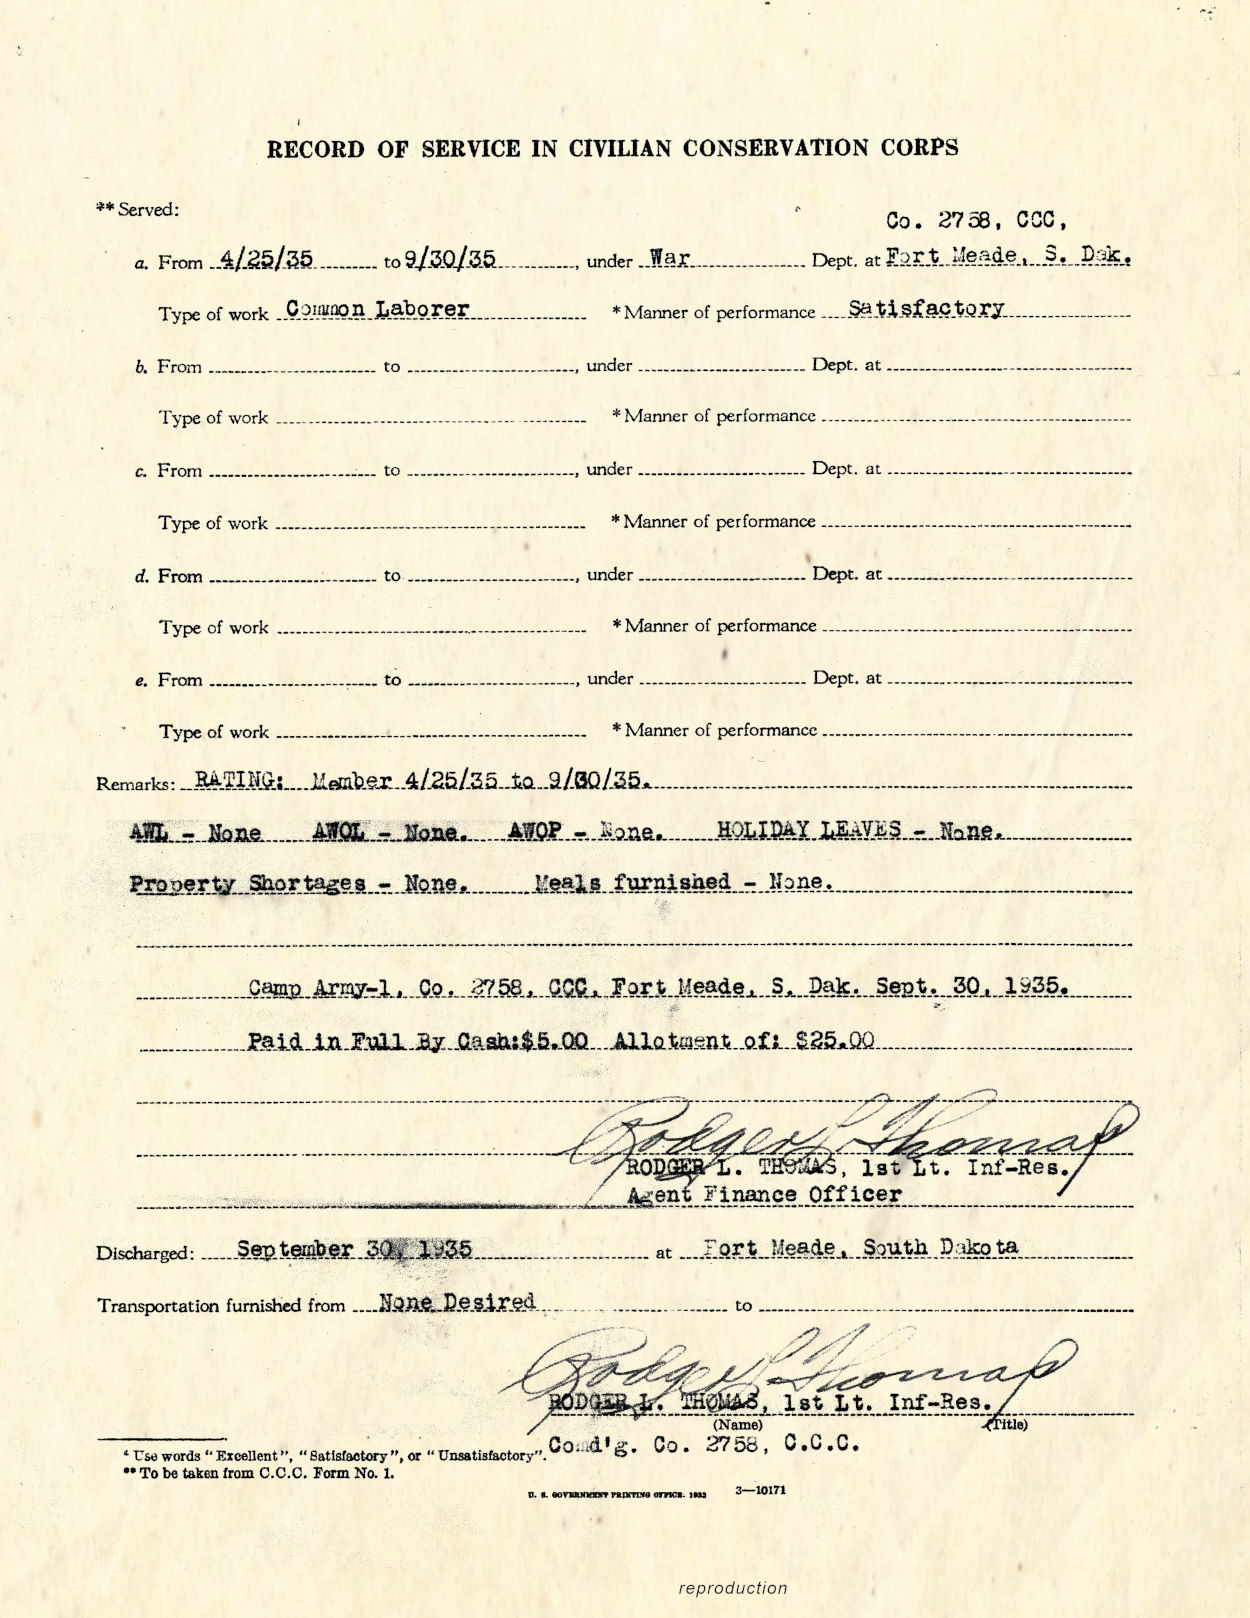 RECORD OF SERVICE IN CIVILIAN CONSERVATION CORPS
** Served:
Co. 2758, CCC,
a. From 4/25/35 to 9/30/35, under War Dept. at Fort Meade, S. Dak.
Type of work Common Laborer * Manner of performance Satisfactory
b. From to , under Dept. at
Type of work * Manner of performance
c. From to , under Dept. at
Type of work * Manner of performance
d. From to , under Dept. at
Type of work * Manner of performance
e. From to , under Dept. at
Type of work * Manner of performance
Remarks: RATING: Member 4/25/35 to 9/30/35.
AWL - None AWOL - None. AWOP - None. HOLIDAY LEAVES - None.
Property Shortages - None. Meals furnished - None.
Camp Army-1, Co. 2758, CCC, Fort Meade, S. Dak. Sept. 30, 1935.
Paid in Full By Cash:$5.00 Allotment of: $25.00
Rodger L. Thomas
RODGER L. THOMAS, 1st Lt. Inf-Res.
Agent Finance Officer
Discharged: September 30, 1935 at Fort Meade, South Dakota
Transportation furnished from None Desired to
Rodger L. Thomas
RODGER L. THOMAS, 1st Lt. Inf-Res.
(Name) (Title)
Comd'g. Co. 2758, C.C.C.
* Use words "Excellent", "Satisfactory", or "Unsatisfactory".
** To be taken from C.C.C. Form No. 1.
U. S. GOVERNMENT PRINTING OFFICE: 1933 3—10171
reproduction